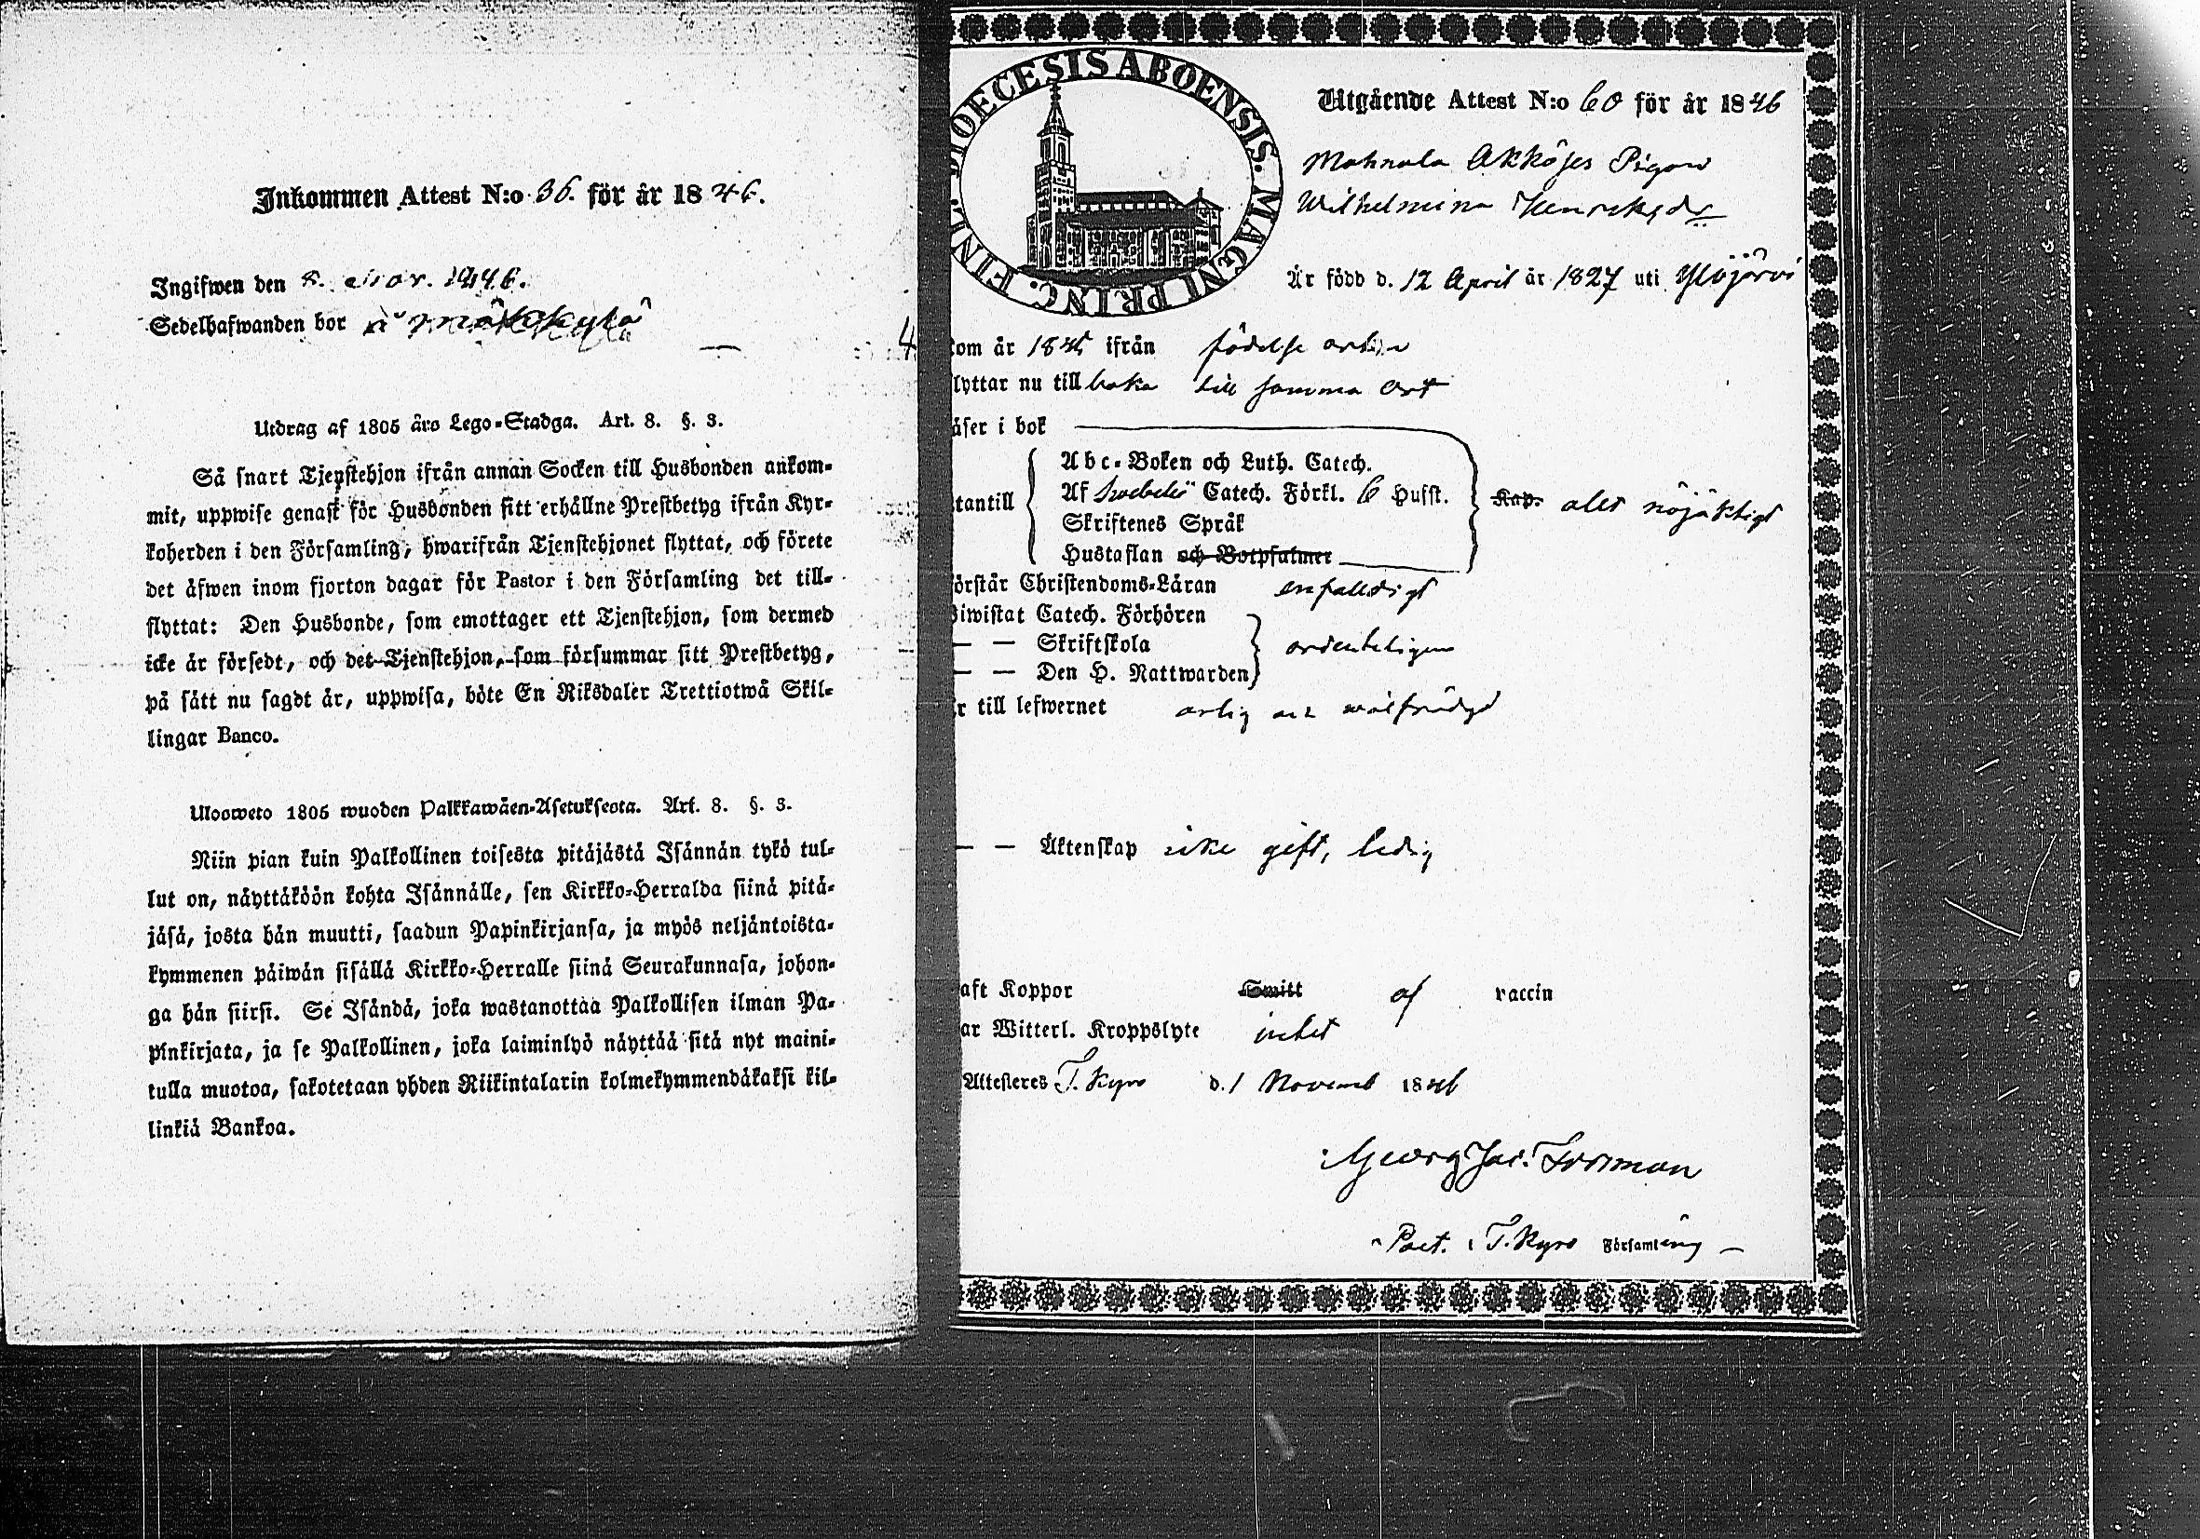 Inkommen Attest N:o 36. för år 1846.
Ingifwen den 8. Nov. 1846.
Sedelhafwanden bor i
Utdrag af 1805 års Lego-Stadga. Art. 8. §. 3.
Så snart Tjenstehjon ifrån annan Socken till Husbonden ankom-
mit, uppwise genast för Husbonden sitt erhållne Prestbetyg ifrån Kyr-
koherden i den Församling, hwarifrån Tjenstehjonet flyttat, och förete
det äfwen inom fjorton dagar för Pastor i den Församling det till-
flyttat: Den Husbonde, som emottager ett Tjenstehjon, som dermed
icke är försedt, och det Tjenstehjon, som försummar sitt Prestbetyg,
på sätt nu sagdt är, uppwisa, böte En Riksdaler Trettiotwå Skil-
lingar Banco.
Uloosweto 1805 wuoden Palkkawäen-Asetuksesta. Art. 8. §. 3.
Niin pian kuin Palkollinen toisesta pitäjästä Isännän tykö tul-
lut on, näyttäköön kohta Isännälle, sen Kirkko-Herralda siinä pitä-
jäsä, josta hän muutti, saadun Papinkirjansa, ja myös neljäntoista-
kymmenen päiwän sisällä Kirkko-Herralle siinä Seurakunnasa, johon-
ga hän siirsi. Se Isändä, joka wastanottaa Palkollisen ilman Pa-
pinkirjata, ja se Palkollinen, joka laiminlyö näyttää sitä nyt maini-
tulla muotoa, sakotetaan yhden Riikintalarin kolmekymmendäkaksi kil-
linkiä Bankoa.
DIOECESIS ABOENSIS. MAGNI PRINC. FINL.
Utgående Attest N:o 60 för år 1846
Mahnala Akköjes Pigan
Wilhelmina Henriksdr
Är född d. 12 April år 1827 uti Ylöjärvi
kom år 1845 ifrån födelse orten
flyttar nu tillbaka till samma ort
läser i bok
Abc-Boken och Luth. Catech.
utantill Af Swebelii Catech. Förkl. 6 Hufst. Kap. allt nöjaktigt
Skriftenes Språk
Hustaflan och Botpsalmer
örstår Christendoms-Läran enfaldigt
Biwistat Catech. Förhören
— — Skriftskola ordenteligen
— — Den H. Nattwarden
r till lefwernet ärlig och wälfrägd
— — Äktenskap icke gift, ledig
aft Koppor Smitt af vaccin
ar Witterl. Kroppslyte intet
Attesteres T. Kyro d. 1 Novemb 1846
Georg Jac. Forsman
Past. i T. Kyro Församling